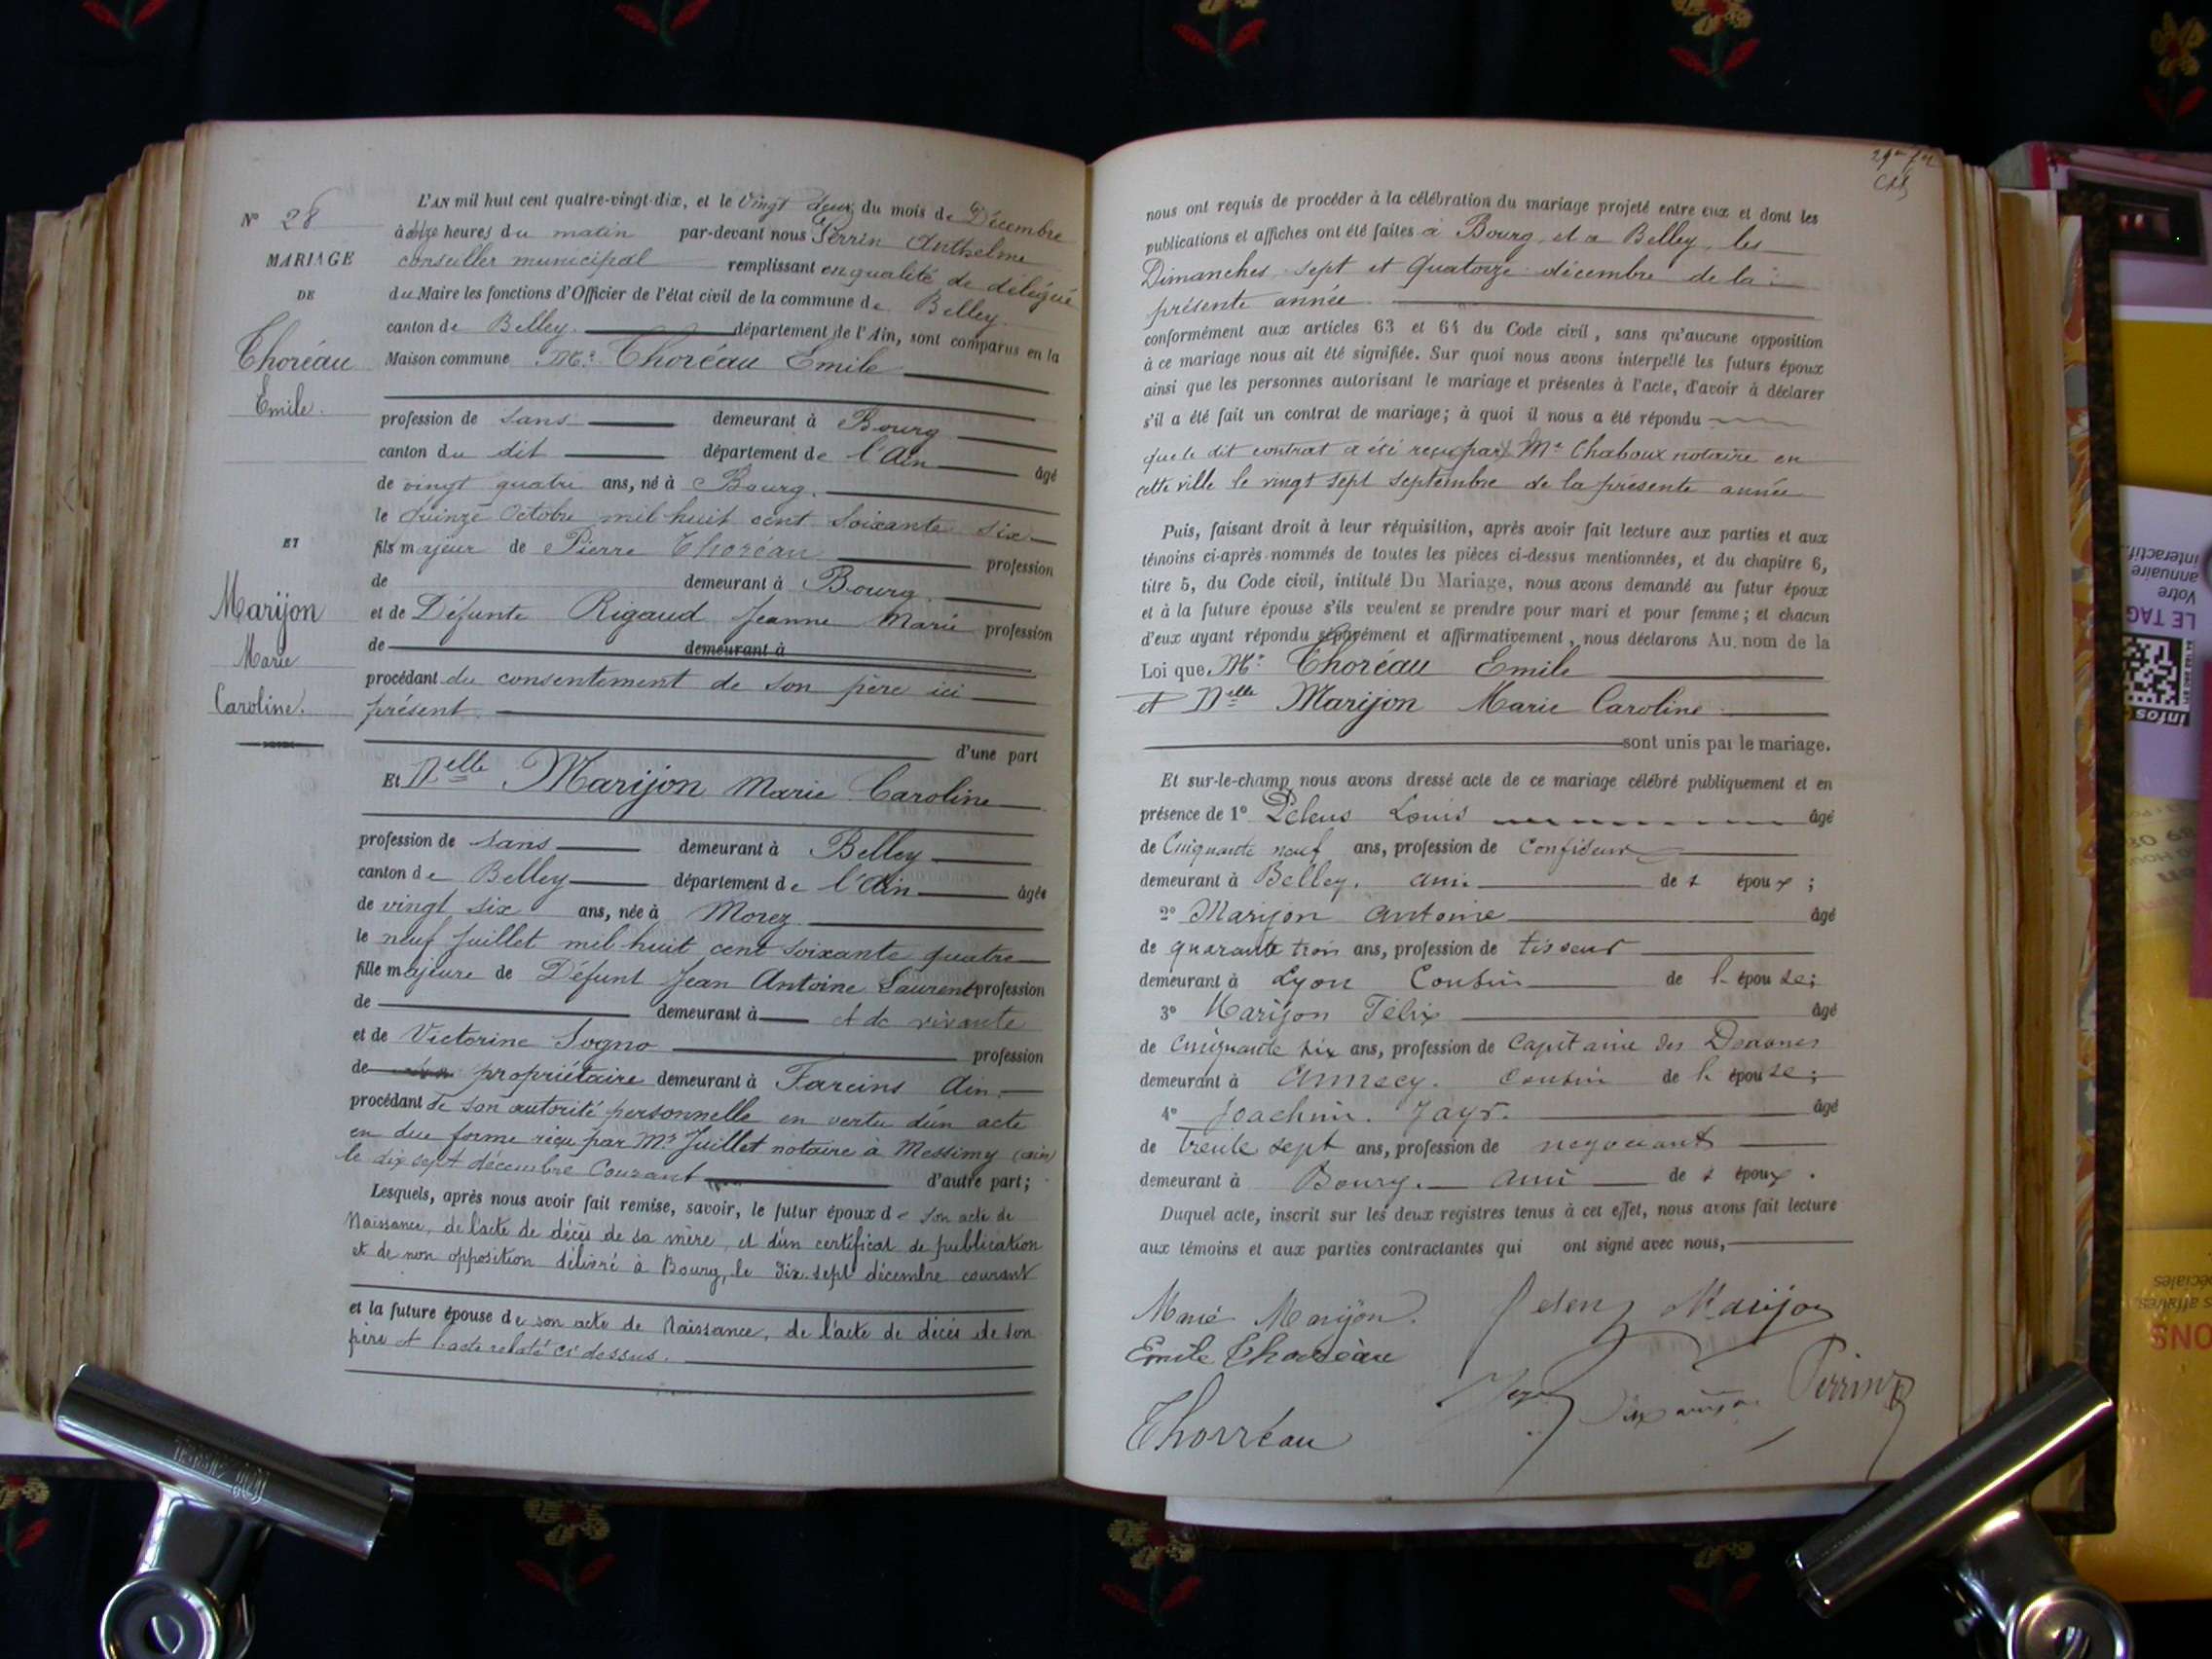 N° 28
MARIAGE
DE
Thoréau
Emile.
ET
Marijon
Marie
Caroline.
L'AN mil huit cent quatre-vingt-dix, et le vingt deux du mois de Décembre
à onze heures du matin par-devant nous Perrin Anthelme
conseiller municipal remplissant en qualité de délégué
du Maire les fonctions d'Officier de l'état civil de la commune de Belley
canton de Belley. département de l'Ain, sont comparus en la
Maison commune Mr. Thoréau Emile
profession de sans demeurant à Bourg
canton du dit département de l'Ain âgé
de vingt quatre ans, né à Bourg.
le quinze Octobre mil huit cent soixante six
fils majeur de Pierre Thoréau profession
de demeurant à Bourg.
et de Défunte Rigaud Jeanne Marie profession
de demeurant à
procédant du consentement de son père ici
présent.
d'une part
Et Delle Marijon Marie Caroline
profession de sans demeurant à Belley
canton de Belley département de l'Ain âgée
de vingt six ans, née à Morez
le neuf Juillet mil huit cent soixante quatre
fille majeure de Défunt Jean Antoine Laurent profession
de demeurant à et de vivante
et de Victorine Sogno profession
de propriétaire demeurant à Fareins Ain.
procédant de son autorité personnelle en vertu d'un acte
en due forme reçu par Mr Juillet notaire à Messimy (ain)
le dix sept décembre Courant d'autre part;
Lesquels, après nous avoir fait remise, savoir, le futur époux de son acte de
Naissance, de l'acte de décès de sa mère, et d'un certificat de publication
et de non opposition délivré à Bourg, le dix-sept décembre courant
et la future épouse de son acte de Naissance, de l'acte de décès de son
père et l'acte relaté ci dessus.
nous ont requis de procéder à la célébration du mariage projeté entre eux et dont les
publications et affiches ont été faites à Bourg, et a Belley, les
Dimanches sept et Quatorze décembre de la
présente année.
conformément aux articles 63 et 64 du Code civil, sans qu'aucune opposition
à ce mariage nous ait été signifiée. Sur quoi nous avons interpellé les futurs époux
ainsi que les personnes autorisant le mariage et présentes à l'acte, d'avoir à déclarer
s'il a été fait un contrat de mariage; à quoi il nous a été répondu
que le dit contrat a été reçu par Me Chaboux notaire en
cette ville le vingt sept septembre de la présente année
Puis, faisant droit à leur réquisition, après avoir fait lecture aux parties et aux
témoins ci-après nommés de toutes les pièces ci-dessus mentionnées, et du chapitre 6,
titre 5, du Code civil, intitulé Du Mariage, nous avons demandé au futur époux
et à la future épouse s'ils veulent se prendre pour mari et pour femme; et chacun
d'eux ayant répondu séparément et affirmativement, nous déclarons Au nom de la
Loi que Mr. Thoréau Emile
et Delle Marijon Marie Caroline
sont unis par le mariage.
Et sur-le-champ nous avons dressé acte de ce mariage célébré publiquement et en
présence de 1° Peleus Louis âgé
de Cinquante neuf ans, profession de Confiseur
demeurant à Belley. ami des époux;
2° Marijon Antoine âgé
de quarante trois ans, profession de tisseur
demeurant à Lyon Cousin de l'épouse;
3° Marijon Félix âgé
de Cinquante six ans, profession de Capitaine des Douanes
demeurant à Annecy. cousin de l'épouse;
4° Joachim. Jayr. âgé
de Trente sept ans, profession de negociant
demeurant à Bourg. ami des époux.
Duquel acte, inscrit sur les deux registres tenus à cet effet, nous avons fait lecture
aux témoins et aux parties contractantes qui ont signé avec nous,
Marie Marijon. Marijon
Emile Thoréau
Perrin
Thorréau
Votre
annuaire
interactif
LE TAG
infos